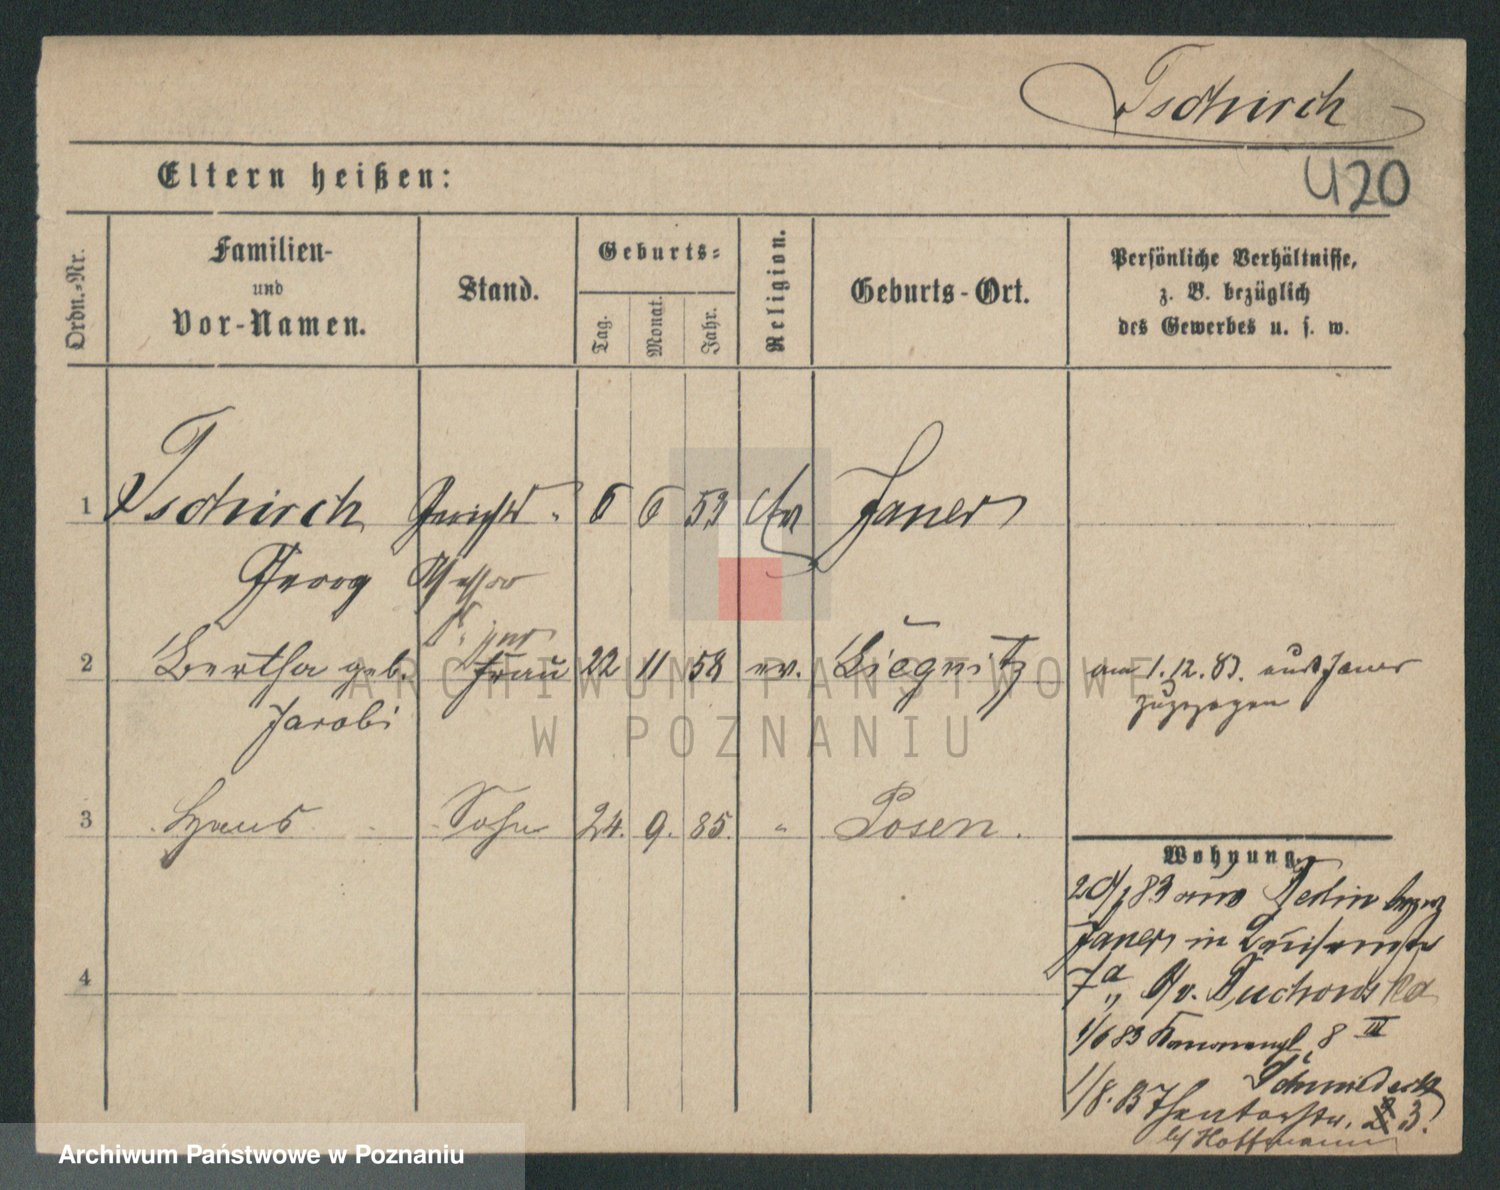 Tschirch
420
Eltern heißen:
Ordn.-Nr.
Familien-
und
Vor-Namen.
Stand.
Geburts-
Tag.
Monat.
Jahr.
Religion.
Geburts-Ort.
Persönliche Verhältnisse,
z. B. bezüglich
des Gewerbes u. s. w.
1 Tschirch Gerichts- 6 6 53 Ev Jauer
Georg Assessor
2 Bertha geb. Frau 22 11 58 ev. Liegnitz am 1.12.83. aus Jauer
Jacobi zugezogen
3 Hans Sohn 24. 9. 85. " Posen.
Wohnung.
83 aus Berlin
Jauer in
7a
1/6 83 8 III
1/8. 83 Theaterstr. 3.
b/ Hoffmann
4
ARCHIWUM PAŃSTWOWE
W POZNANIU
Archiwum Państwowe w Poznaniu